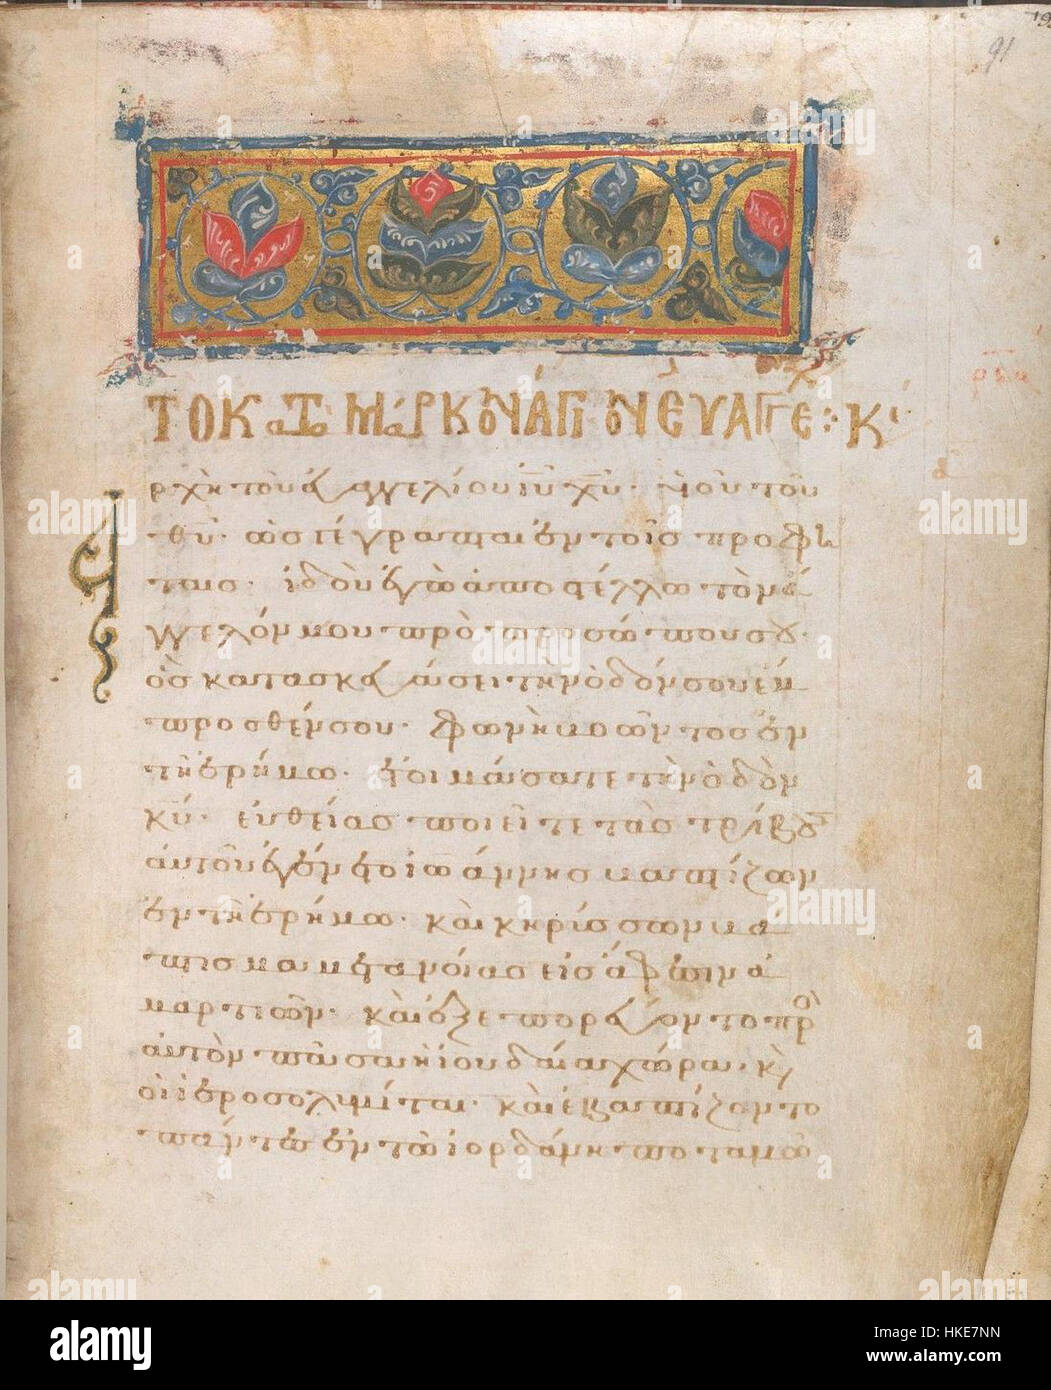 91
ΤΟ ΚΑΤΑ ΜΑΡΚΟΝ ΑΓΙΟΝ ΕΥΑΓΓΕ
ἀρχὴ τοῦ εὐαγγελίου ἰυ χυ· υἱοῦ τοῦ
θυ· ὡς γέγραπται ἐν τοῖς προφή
ταις· ἰδοὺ ἐγὼ ἀποστέλλω τὸν ἄ
γγελόν μου πρὸ προσώπου σου·
ὃς κατασκευάσει τὴν ὁδόν σου ἔμ
προσθέν σου· φωνὴ βοῶντος ἐν
τῆ ἐρήμω· ἑτοιμάσατε τὴν ὁδὸν
κυ· εὐθείας ποιεῖτε τὰς τρίβους
αὐτοῦ ἐγένετο ἰωάννης βαπτίζων
ἐν τῆ ἐρήμω· καὶ κηρίσσων βά
πτισμα μετανοίας εἰς ἄφεσιν ἁ
μαρτιῶν· καὶ ἐξεπορεύοντο πρὸ
αὐτὸν πᾶσα ἡ ἰουδαία χώρα· κ
οἱ ἱεροσολυμίται· καὶ ἐβαπτίζοντο
πάντες ἐν τῶ ἰορδάνη ποταμῶ
alamy
Image ID: HKE7NN
www.alamy.com